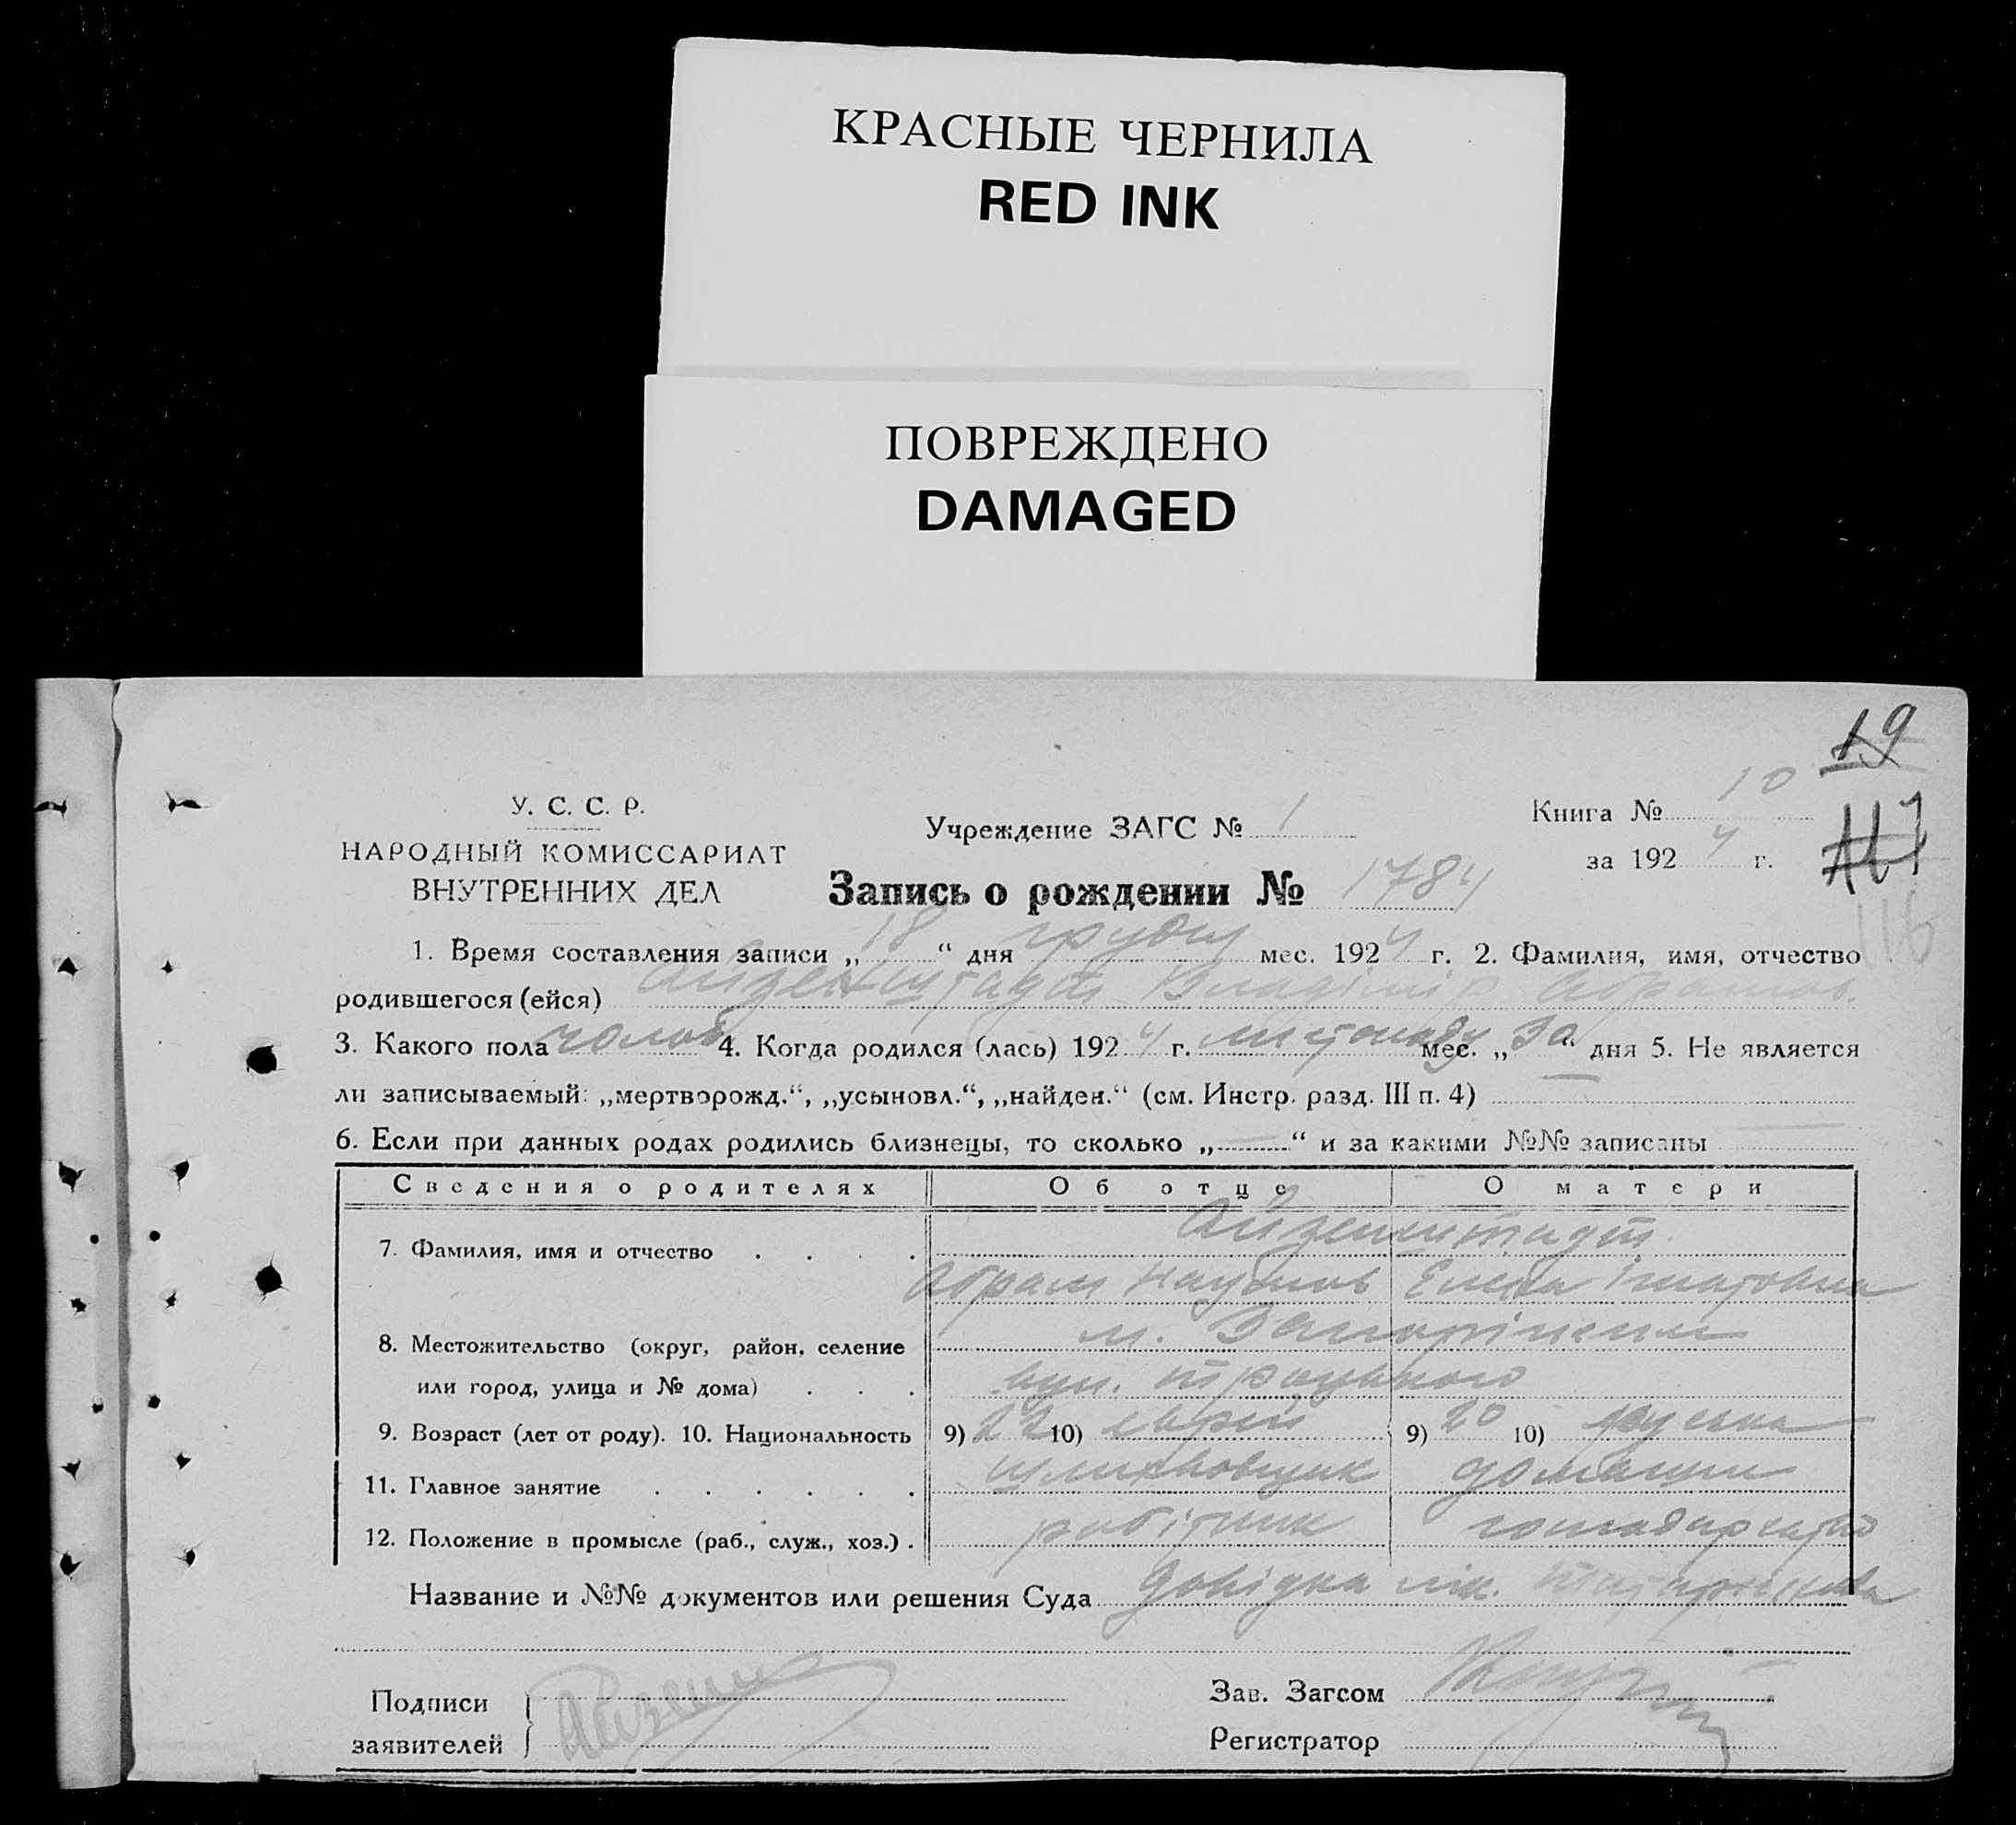 КРАСНЫЕ ЧЕРНИЛА
RED INK
ПОВРЕЖДЕНО
DAMAGED
19
У. С. С. Р.
НАРОДНЫЙ КОМИССАРИАТ
ВНУТРЕННИХ ДЕЛ
Учреждение ЗАГС № 1
Книга № 10
за 1924 г.
117
Запись о рождении № 1784
116
1. Время составления записи „18“ дня грудня мес. 1924 г. 2. Фамилия, имя, отчество
родившегося (ейся) Айзенштадт Владімір Абрамов.
3. Какого пола чолов 4. Когда родился (лась) 1924 г. листопаду мес. „30“ дня 5. Не является
ли записываемый: „мертворожд.“, „усыновл.“, „найден.“ (см. Инстр. разд. III п. 4) —
6. Если при данных родах родились близнецы, то сколько „—“ и за какими №№ записаны —
Сведения о родителях Об отце О матери
7. Фамилия, имя и отчество . . . . Айзенштадт
Абрам Наумов Елена Ігнатовна
8. Местожительство (округ, район, селение м. Запоріжжя
или город, улица и № дома) . . . вул. Троцького
9. Возраст (лет от роду). 10. Национальность 9) 22 10) еврей 9) 20 10) руська
11. Главное занятие . . . . . . домашнє
12. Положение в промысле (раб., служ., хоз.) . робітник господарство
Название и №№ документов или решения Суда Довідка лік.
Подписи
заявителей
Зав. Загсом
Регистратор